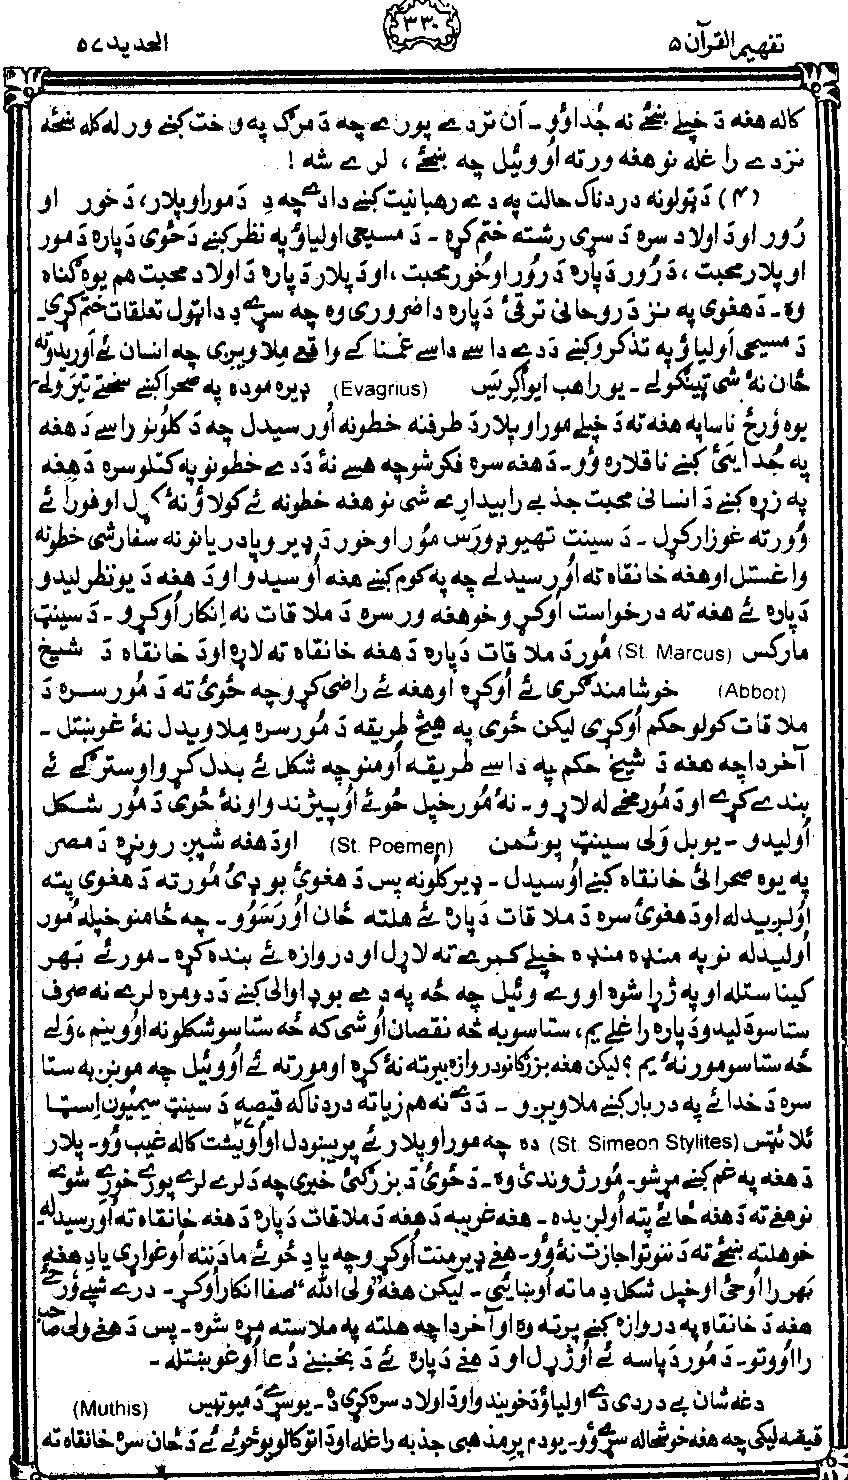 تفهیم القرآن ۵
۳۳۰
الحدید ۵۷
کاله هغه دَ خپلے ښځے نه جُدا وُو ـ اَن تردے پورے چه دَ مرګ په وخت کښے ورله کله ښځه
نزدے راغله نو هغه ورته اُووئیل چه ښځے ، لرے شه !
(۴) دَ ټولونه دردناک حالت په دے رهبانیت کښے دا دے چه دِ دَ مور او پلار، دَ خور او
رُور او دَ اولاد سره دَ سړی رشته ختم کړه ـ دَ مسیحی اولیاؤ په نظر کښے دَ ځوی دَپاره دَ مور
او پلار محبت ، دَ رُور دَپاره دَ رُور او خور محبت ، او دَ پلار دَپاره دَ اولاد محبت هم یوه ګناه
وه ـ دَ هغوی په نزد روحانی ترقئ دَپاره دا ضروری وه چه سړے دِ دا ټول تعلقات ختم کړی ـ
دَ مسیحی اولیاؤ په تذکرو کښے دَ دے داسے داسے غمناکے واقعے ملاویږی چه انسان ئے اَوریدو ته
ځان نهٔ شی ټینګولے ـ یو راهب ایواګریَس (Evagrius) ډیره موده په صحرا کښے سختے تیرولے
یوه وُرځ ناسا په هغه ته دَ خپلے مور او پلار دَ طرفنه خطونه اُورسیدل چه دَ کلونو راسے دَ هغه
په جُدایئ کښے ناقلاره وُو ـ دَ هغه سره فکر شو چه هسے نهٔ دَ دے خطونو په کتلو سره دَ هغه
په زړه کښے دَ انسانی محبت جذبے رابیدارے شی نو هغه خطونه ئے کولاؤ نهٔ کړل او فوراً ئے
وُورته غوزار کړل ـ دَ سینټ تهیوډورَس مُور او خور دَ ډیرو پادریانو نه سفارشی خطونه
واغستل او هغه خانقاه ته اُورسیدلے چه په کوم کښے هغه اُوسیدو او دَ هغه دَ یو نظر لیدو
دَپاره ئے هغه ته درخواست اُوکړو خو هغه ورسره دَ ملاقات نه اِنکار اُوکړو ـ دَ سینټ
مارکس (St. Marcus) مُور دَ ملاقات دَپاره دَ هغه خانقاه ته لاړه او دَ خانقاه دَ شیخ
(Abbot) خوشامندګری ئے اُوکړه او هغه ئے راضی کړو چه ځوئ ته دَ مُور سره دَ
ملاقات کولو حکم اُوکړی لیکن ځوی په هیڅ طریقه دَ مُور سره ملاویدل نهٔ غوښتل ـ
آخر دا چه هغه دَ شیخ حکم په داسے طریقه اُومنو چه شکل ئے بدل کړو او سترګے ئے
بندے کړے او دَ مُور مخے له لاړو ـ نهٔ مُور خپل ځوئے اُوپیژندو او نهٔ ځوی دَ مُور شکل
اُولیدو ـ یو بل ولی سینټ پوئمن (St. Poemen) او دَ هغه شپږ روڼړه دَ مصر
په یوه صحرائئ خانقاه کښے اُوسیدل ـ ډیر کلُونه پس دَ هغوئ بوډئ مُور ته دَ هغوی پته
اُولږیدله او دَ هغوئ سره دَ ملاقات دَپاره ئے هلته ځان اُورَسَوُو ـ چه ځامنو خپله مُور
اُولیدله نو په منډه منډه خپلے کمرے ته لاړل او دروازه ئے بنده کړه ـ مور ئے بَهر
کیناستله او په ژړا شوه او وے وئیل چه څه په دے بوډاوالی کښے دَ دومره لرے نه صرف
ستاسو دَ لیدو دَپاره راغلے یم ، ستاسو به څه نقصان اُوشی که څه ستاسو شکلونه اُووینم ، ولے
څه ستاسو مور نهٔ یم ؟ لیکن هغه بزرګانو دروازه بیرته نهٔ کړه او مور ته ئے اُووئیل چه مونږ به ستا
سره دَ خدائے په دربار کښے ملاویږو ـ دَ دے نه هم زیاته دردناکه قیصه دَ سینټ سیمیُون اِسټا
ئلائټس (St. Simeon Stylites) ده چه مور او پلار ئے پریښودل او اُویئشت ۲۷ کاله غیب وُو ـ پلار
دَ هغه په غم کښے مړ شو ـ مُور ژوندئ وه ـ دَ ځوئ دَ بزرګئ خبرے چه دَ لرے لرے پورے خورے شوے
نو هغے ته دَ هغه ځائے پته اُولږیده ـ هغه غریبه دَ هغه دَ ملاقات دَپاره دَ هغه خانقاه ته اُورسیدله ـ
خو هلته ښځے ته دَ ننوتو اجازت نهٔ وُو ـ هغے ډیر منت اُوکړو چه یا دِ ځوئے ما دَننه اُوغواړی یا دِ هغه
بَهر رااُوځی او خپل شکل دِ ما ته اُوښایئ ـ لیکن هغه "ولی الله" صفا انکار اُوکړو ـ درے شپے وُرځے
هغه دَ خانقاه په دروازه کښے پرته وه او آخر دا چه هلته په ملاسته مړه شوه ـ پس دَ هغے ولی صاحب
رااُووتو ـ دَ مُور دَ پاسه ئے اُوژړل او دَ هغے دَپاره ئے دَ بخښنے دُعا اُوغوښتله ـ
دغه شان بے دردی دے اولیاؤ دَ خویندو او دَ اولاد سره کړی ده ـ یو سړے دَ میوتهیس (Muthis)
قیصه لیکی چه هغه خوشحاله سړے وُو ـ یو دم پرِ مذهبی جذبه راغله او دَ اتو کالو یو ځوئے ئے دَ ځان سره خانقاه ته